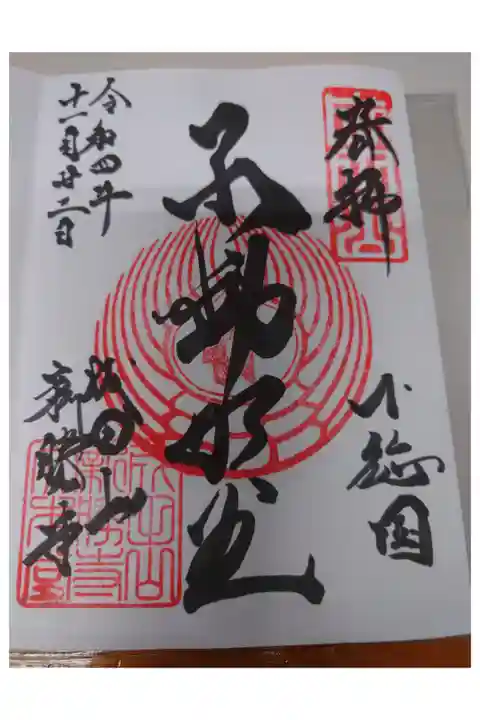 奉拝
下総国
不動明王
成田山
新勝寺
令和四年
十一月廿二日
成田山
新勝寺